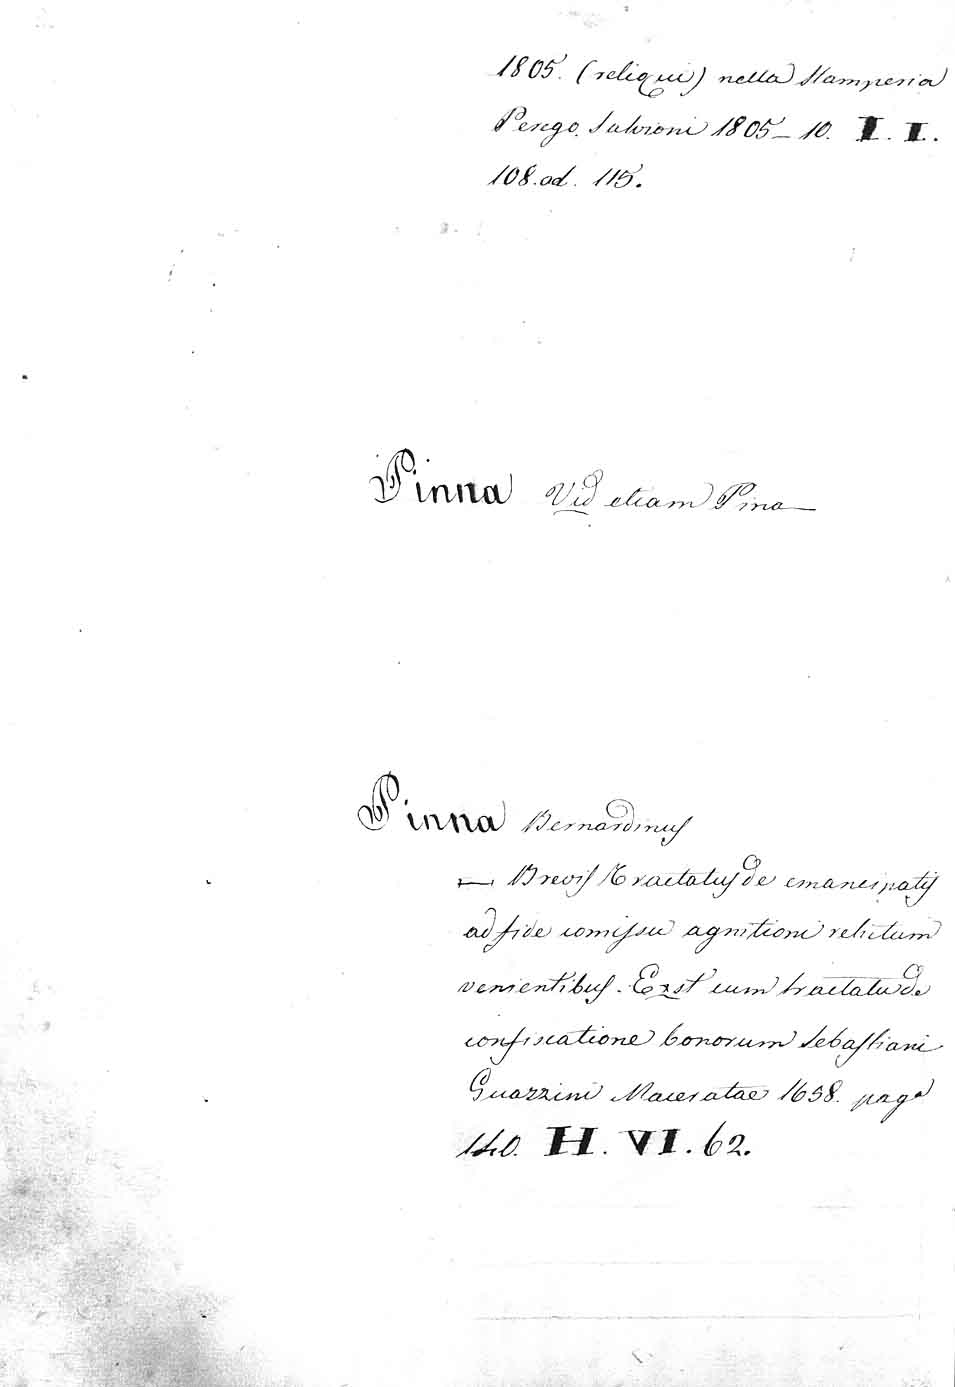 1805. (reliqui) nella Stamperia
Perego. Salvioni 1805–10. I. I.
108. ad. 115.
Pinna Vid etiam Pina
Pinna Bernardinus
— Brevis Tractatus de emancipatis
ad fide comissu agnitioni relictum
venientibus. Exst cum tractatu de
confiscatione bonorum Sebastiani
Guazzini Maceratae 1658. paga
140. H. VI. 62.